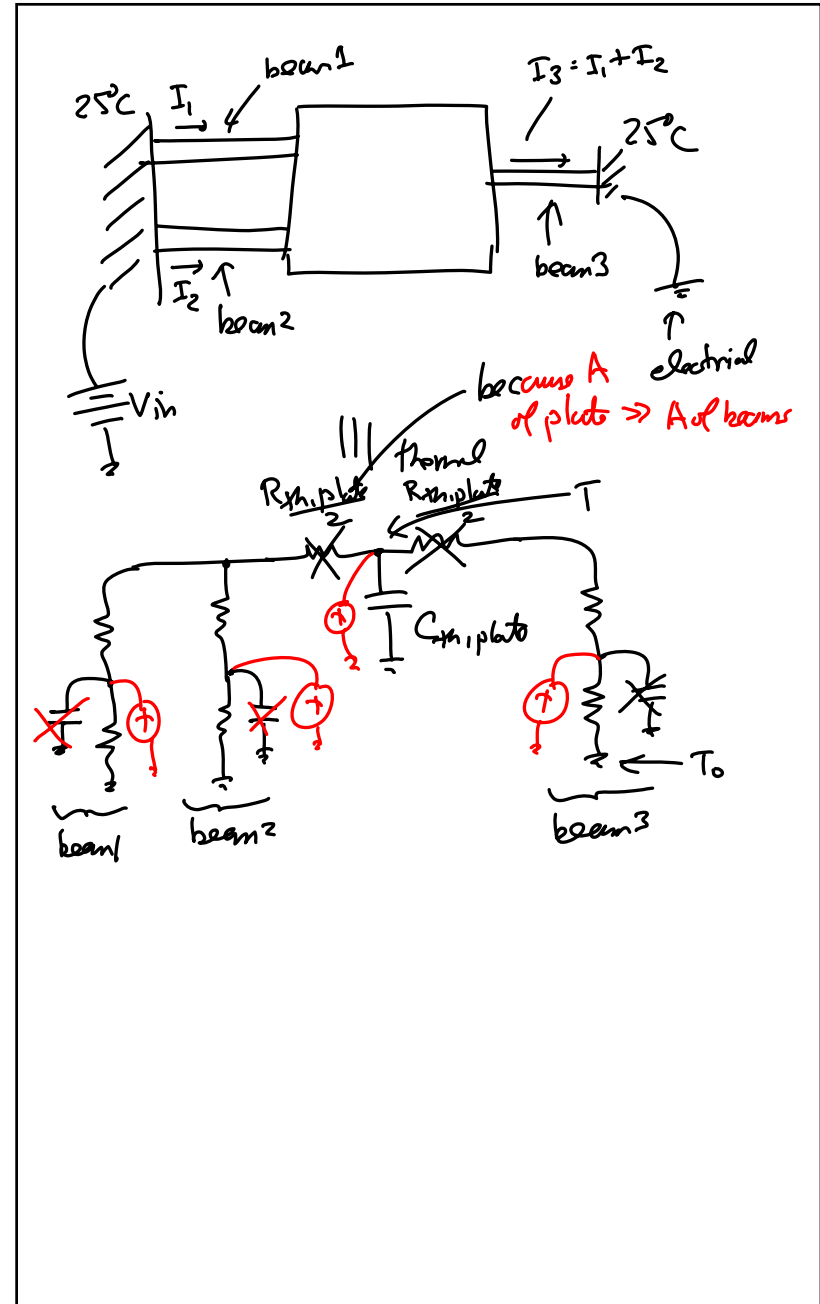 beam1
I₃ = I₁ + I₂
25°C
I₁
25°C
beam3
I₂
beam2
electrial
Vin
because A
of plate >> A of beams
thermal
Rth,plate
2
Rth,plate
2
T
Cth,plate
T₀
beam1
beam2
beam3